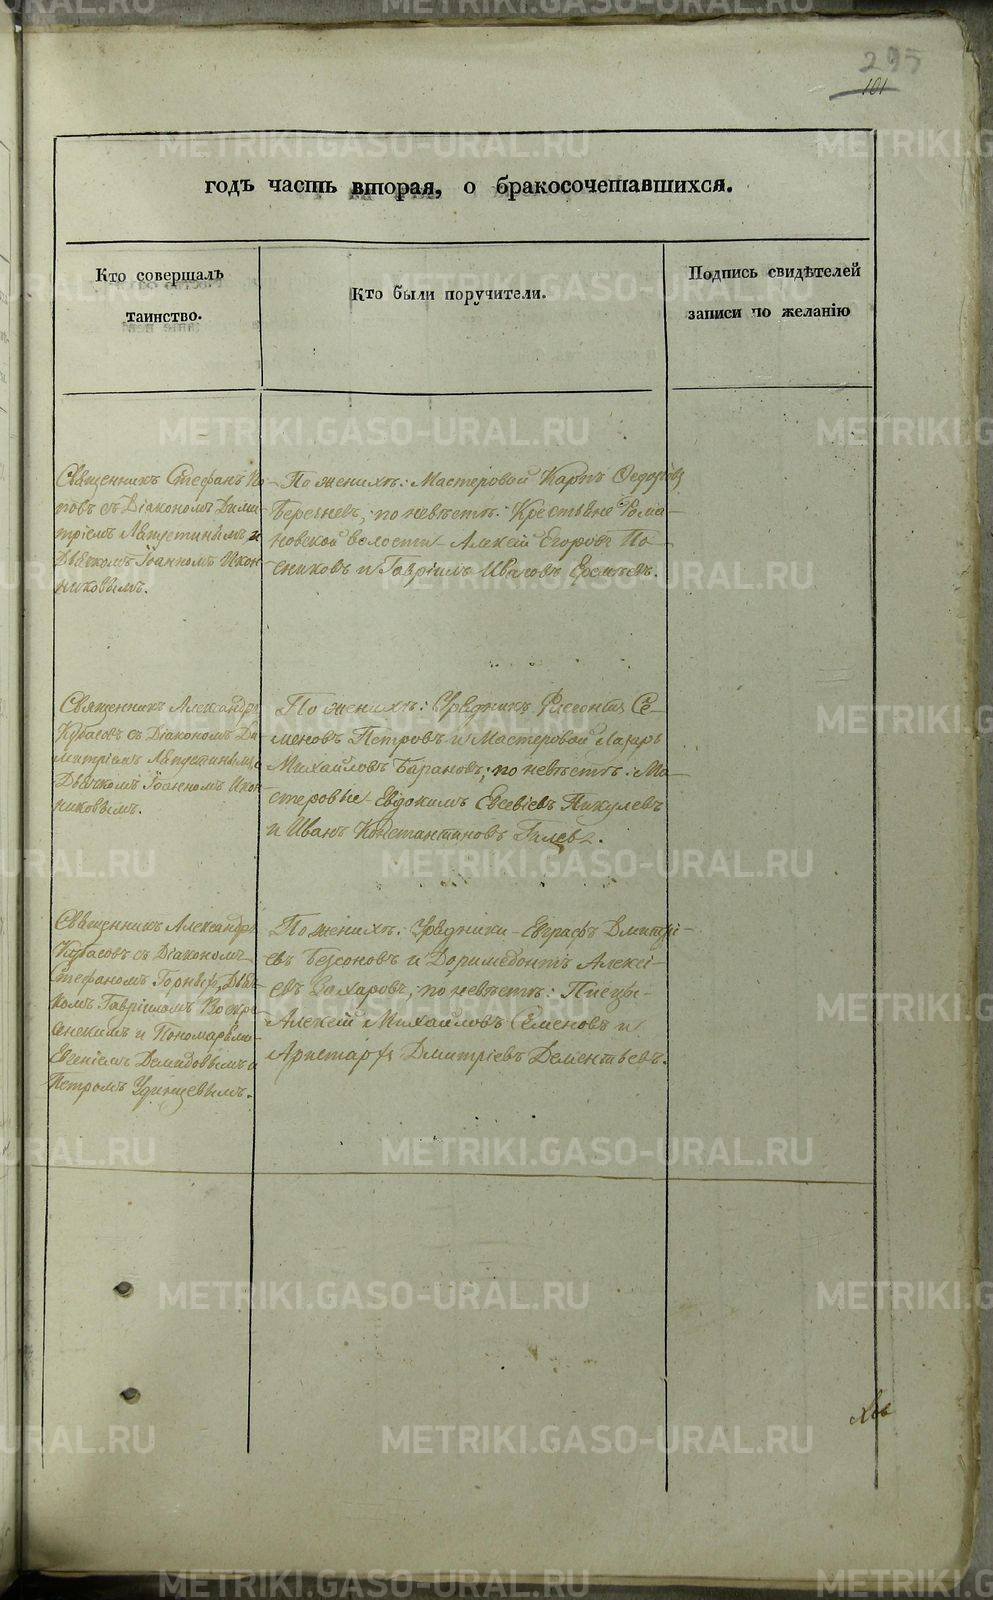 295
101
годъ часть вторая, о бракосочетавшихся.
Кто совершалъ
таинство.
Кто были поручители.
Подпись свидѣтелей
записи по желанію
Священникъ Стефанъ По-
повъ съ Діакономъ Дими-
тріемъ Лапустинымъ и
Дьячкомъ Іоанномъ Икон-
никовымъ.
По женихѣ: Мастеровой Карпъ Ѳедоровъ
Береневъ; по невѣстѣ: Крестьяне Рома-
новской волости Алексѣй Егоровъ По-
сниковъ и Гавріилъ Ивановъ Еремѣевъ.
Священникъ Александръ
Кубасовъ съ Діакономъ Ди-
митріемъ Лапустинымъ и
Дьячкомъ Іоанномъ Икон-
никовымъ.
По женихѣ: Урядникъ Леонтій Се-
меновъ Петровъ и Мастеровой Лазарь
Михайловъ Барановъ; по невѣстѣ: Ма-
стеровые Евдокимъ Евсевіевъ Пикулевъ
и Иванъ Константиновъ Гилевъ.
Священникъ Александръ
Кубасовъ съ Діакономъ
Стефаномъ Горныхъ, Дьяч-
комъ Гавріиломъ Воскре-
сенскимъ и Пономарями
Евгеніемъ Демидовымъ и
Петромъ Удинцевымъ.
По женихѣ: Урядники Евграфъ Дмитрі-
евъ Безсоновъ и Доримедонтъ Алексі-
евъ Захаровъ; по невѣстѣ: Писцы
Алексѣй Михайловъ Семеновъ и
Аристархъ Дмитріевъ Дементьевъ.
METRIKI.GASO-URAL.RU